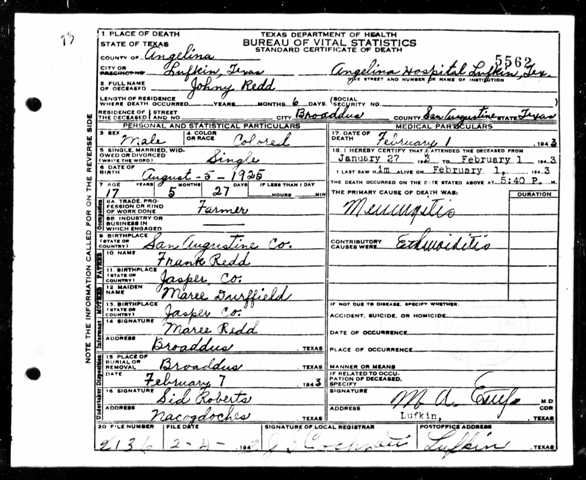 1 PLACE OF DEATH
STATE OF TEXAS
TEXAS DEPARTMENT OF HEALTH
BUREAU OF VITAL STATISTICS
STANDARD CERTIFICATE OF DEATH
5562
COUNTY OF Angelina
CITY OR PRECINCT NO. Lufkin, Texas Angelina Hospital Lufkin, Tex.
GIVE STREET AND NUMBER OR NAME OF INSTITUTION
2 FULL NAME OF DECEASED Johny Redd
LENGTH OF RESIDENCE WHERE DEATH OCCURRED YEARS MONTHS 6 DAYS SOCIAL SECURITY NO.
RESIDENCE OF THE DECEASED STREET AND NO. CITY Broaddus COUNTY San Augustine STATE Texas
PERSONAL AND STATISTICAL PARTICULARS
3 SEX Male 4 COLOR OR RACE Colored
5 SINGLE, MARRIED, WIDOWED OR DIVORCED (WRITE THE WORD) Single
6 DATE OF BIRTH August-5-1925
7 AGE 17 YEARS 5 MONTHS 27 DAYS IF LESS THAN 1 DAY HOURS MIN
8A TRADE, PROFESSION OR KIND OF WORK DONE Farmer
8B INDUSTRY OR BUSINESS IN WHICH ENGAGED
9 BIRTHPLACE (STATE OR COUNTRY) San Augustine Co.
10 NAME Frank Redd
11 BIRTHPLACE (STATE OR COUNTRY) Jasper Co.
12 MAIDEN NAME Maree
13 BIRTHPLACE (STATE OR COUNTRY) Jasper Co.
14 SIGNATURE Maree Redd
ADDRESS Broaddus TEXAS
15 PLACE OF BURIAL OR REMOVAL Broaddus TEXAS
DATE February 7 1943
16 SIGNATURE Sid Roberts
ADDRESS Nacogdoches TEXAS
MEDICAL PARTICULARS
17 DATE OF DEATH February 1 1943
18 I HEREBY CERTIFY THAT I ATTENDED THE DECEASED FROM
January 27 TO February 1 1943
I LAST SAW him ALIVE ON February 1, 1943
THE DEATH OCCURRED ON THE DATE STATED ABOVE AT 5:40 P. M.
THE PRIMARY CAUSE OF DEATH WAS: DURATION
CONTRIBUTORY CAUSES WERE: Ethmoiditis
IF NOT DUE TO DISEASE, SPECIFY WHETHER:
ACCIDENT, SUICIDE, OR HOMICIDE
DATE OF OCCURRENCE
PLACE OF OCCURRENCE
MANNER OR MEANS
IF RELATED TO OCCUPATION OF DECEASED, SPECIFY
SIGNATURE M. A. M D
ADDRESS Lufkin, TEXAS
20 FILE NUMBER FILE DATE SIGNATURE OF LOCAL REGISTRAR POSTOFFICE ADDRESS
2-4- 194 Lufkin TEXAS
NOTE THE INFORMATION CALLED FOR ON THE REVERSE SIDE